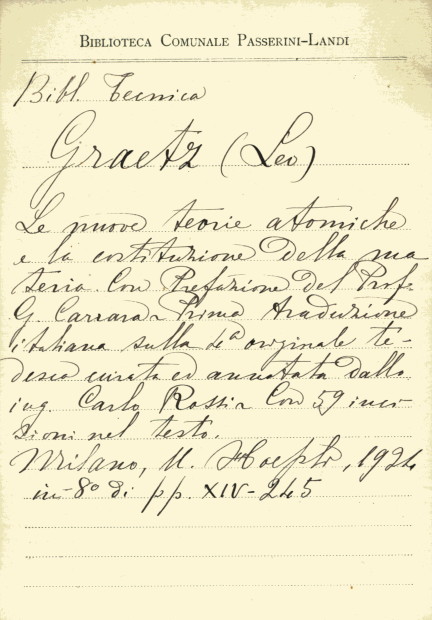 BIBLIOTECA COMUNALE PASSERINI-LANDI
Bibl. Tecnica
Graetz (Leo)
Le nuove teorie atomiche
e la costituzione della ma
teria. Con Prefazione del Prof.
G. Carrara - Prima traduzione
italiana sulla 4ª originale te-
desca curata ed annotata dallo
ing. Carlo Rossi - Con 59 inci-
sioni nel testo.
Milano, U. Hoepli, 1924
in-8º di pp. XIV-245